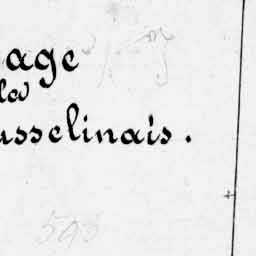 age
la
usselinais.